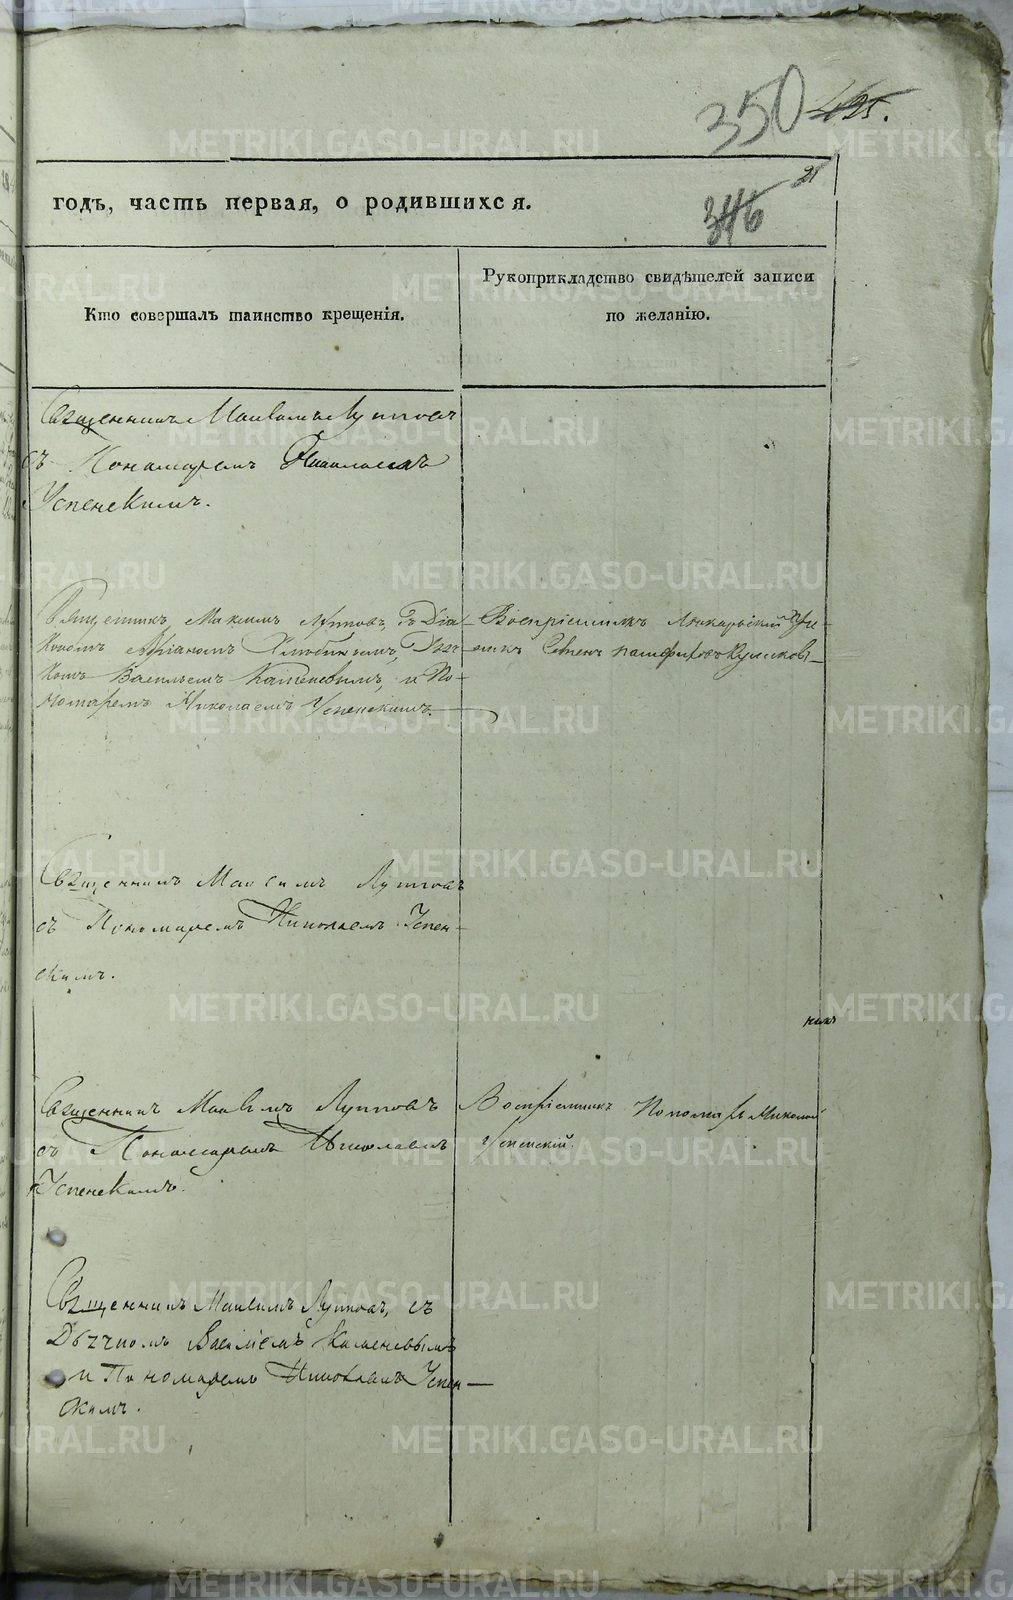 350 425.
годъ, часть первая, о родившихся.
346 21
Кто совершалъ таинство крещенія.
Рукоприкладство свидѣтелей записи
по желанію.
Священникъ Максимъ Лупповъ
съ Пономаремъ Николаемъ
Успенскимъ.
Священникъ Максимъ Лупповъ, съ Діа-
кономъ Хлыбинымъ, Дьяч-
комъ Васильемъ Каменевымъ, и По-
номаремъ Николаемъ Успенскимъ.
Воспріемникъ
Священникъ Максимъ Лупповъ
съ Пономаремъ Николаемъ Успен-
скимъ.
Священникъ Максимъ Лупповъ
съ Пономаремъ Николаемъ
Успенскимъ.
Воспріемникъ Пономарь Николай
Успенскій.
Священникъ Максимъ Лупповъ, съ
Дьячкомъ Васильемъ Каменевымъ
и Пономаремъ Николаемъ Успен-
скимъ.
METRIKI.GASO-URAL.RU